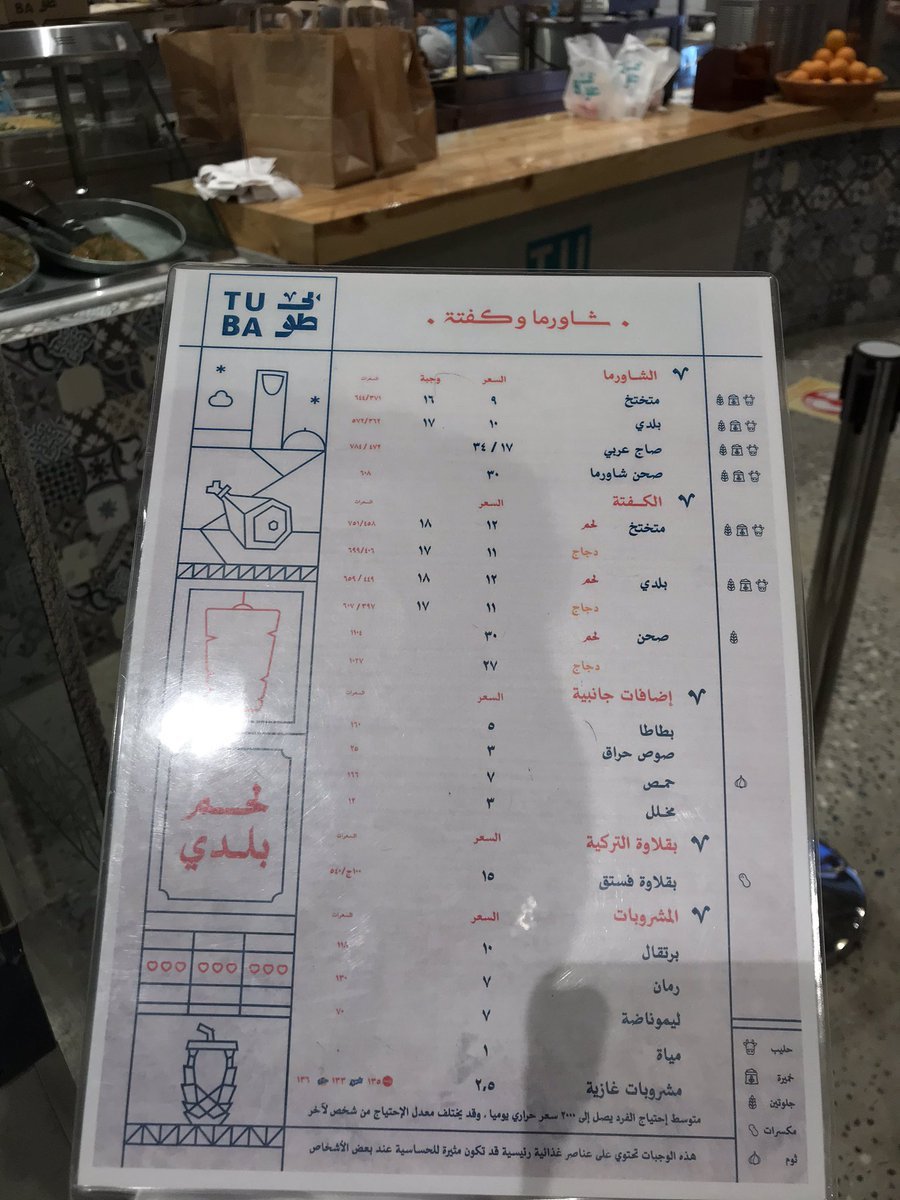 TU
BA
طوبى
TU
شاورما وكفتة
الشاورما السعر وجبة السعرات
متختخ ٩ ١٦ ٦٤٤/٣٧١
بلدي ١٠ ١٧ ٥٧٢/٣٦٢
صاج عربي ١٧ / ٣٤ ٧٨٤/٤٧٢
صحن شاورما ٣٠ ٦٠٨
الكفتة السعر السعرات
متختخ لحم ١٢ ١٨ ٧٥١/٤٥٨
دجاج ١١ ١٧ ٦٩٩/٤٠٦
بلدي لحم ١٢ ١٨ ٦٥٩/٤٤٩
دجاج ١١ ١٧ ٦٠٧/٣٩٧
صحن لحم ٣٠ ١١٠٤
دجاج ٢٧ ١٠٢٧
إضافات جانبية السعر السعرات
بطاطا ٥ ١٦٠
صوص حراق ٣ ٢٥
حمص ٧ ١٦٦
مخلل ٣ ١٢
بقلاوة التركية السعر السعرات
بقلاوة فستق ١٥ ١٠٠ج/٥٤٠
المشروبات السعر السعرات
برتقال ١٠
رمان ٧ ١٣٠
ليموناضة ٧ ٧٠
مياة ١ ٠
مشروبات غازية ٢,٥ ١٣٥ ١٣٣ ١٣٦
متوسط إحتياج الفرد يصل إلى ٢٠٠٠ سعر حراري يوميا ، وقد يختلف معدل الإحتياج من شخص لآخر
هذه الوجبات تحتوي على عناصر غذائية رئيسية قد تكون مثيرة للحساسية عند بعض الأشخاص
لحم
بلدي
حليب
خميرة
جلوتين
مكسرات
ثوم